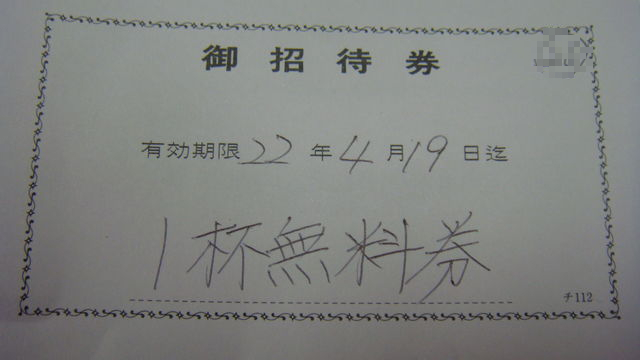 御招待券
有効期限22年4月19日迄
1杯無料券
チ112